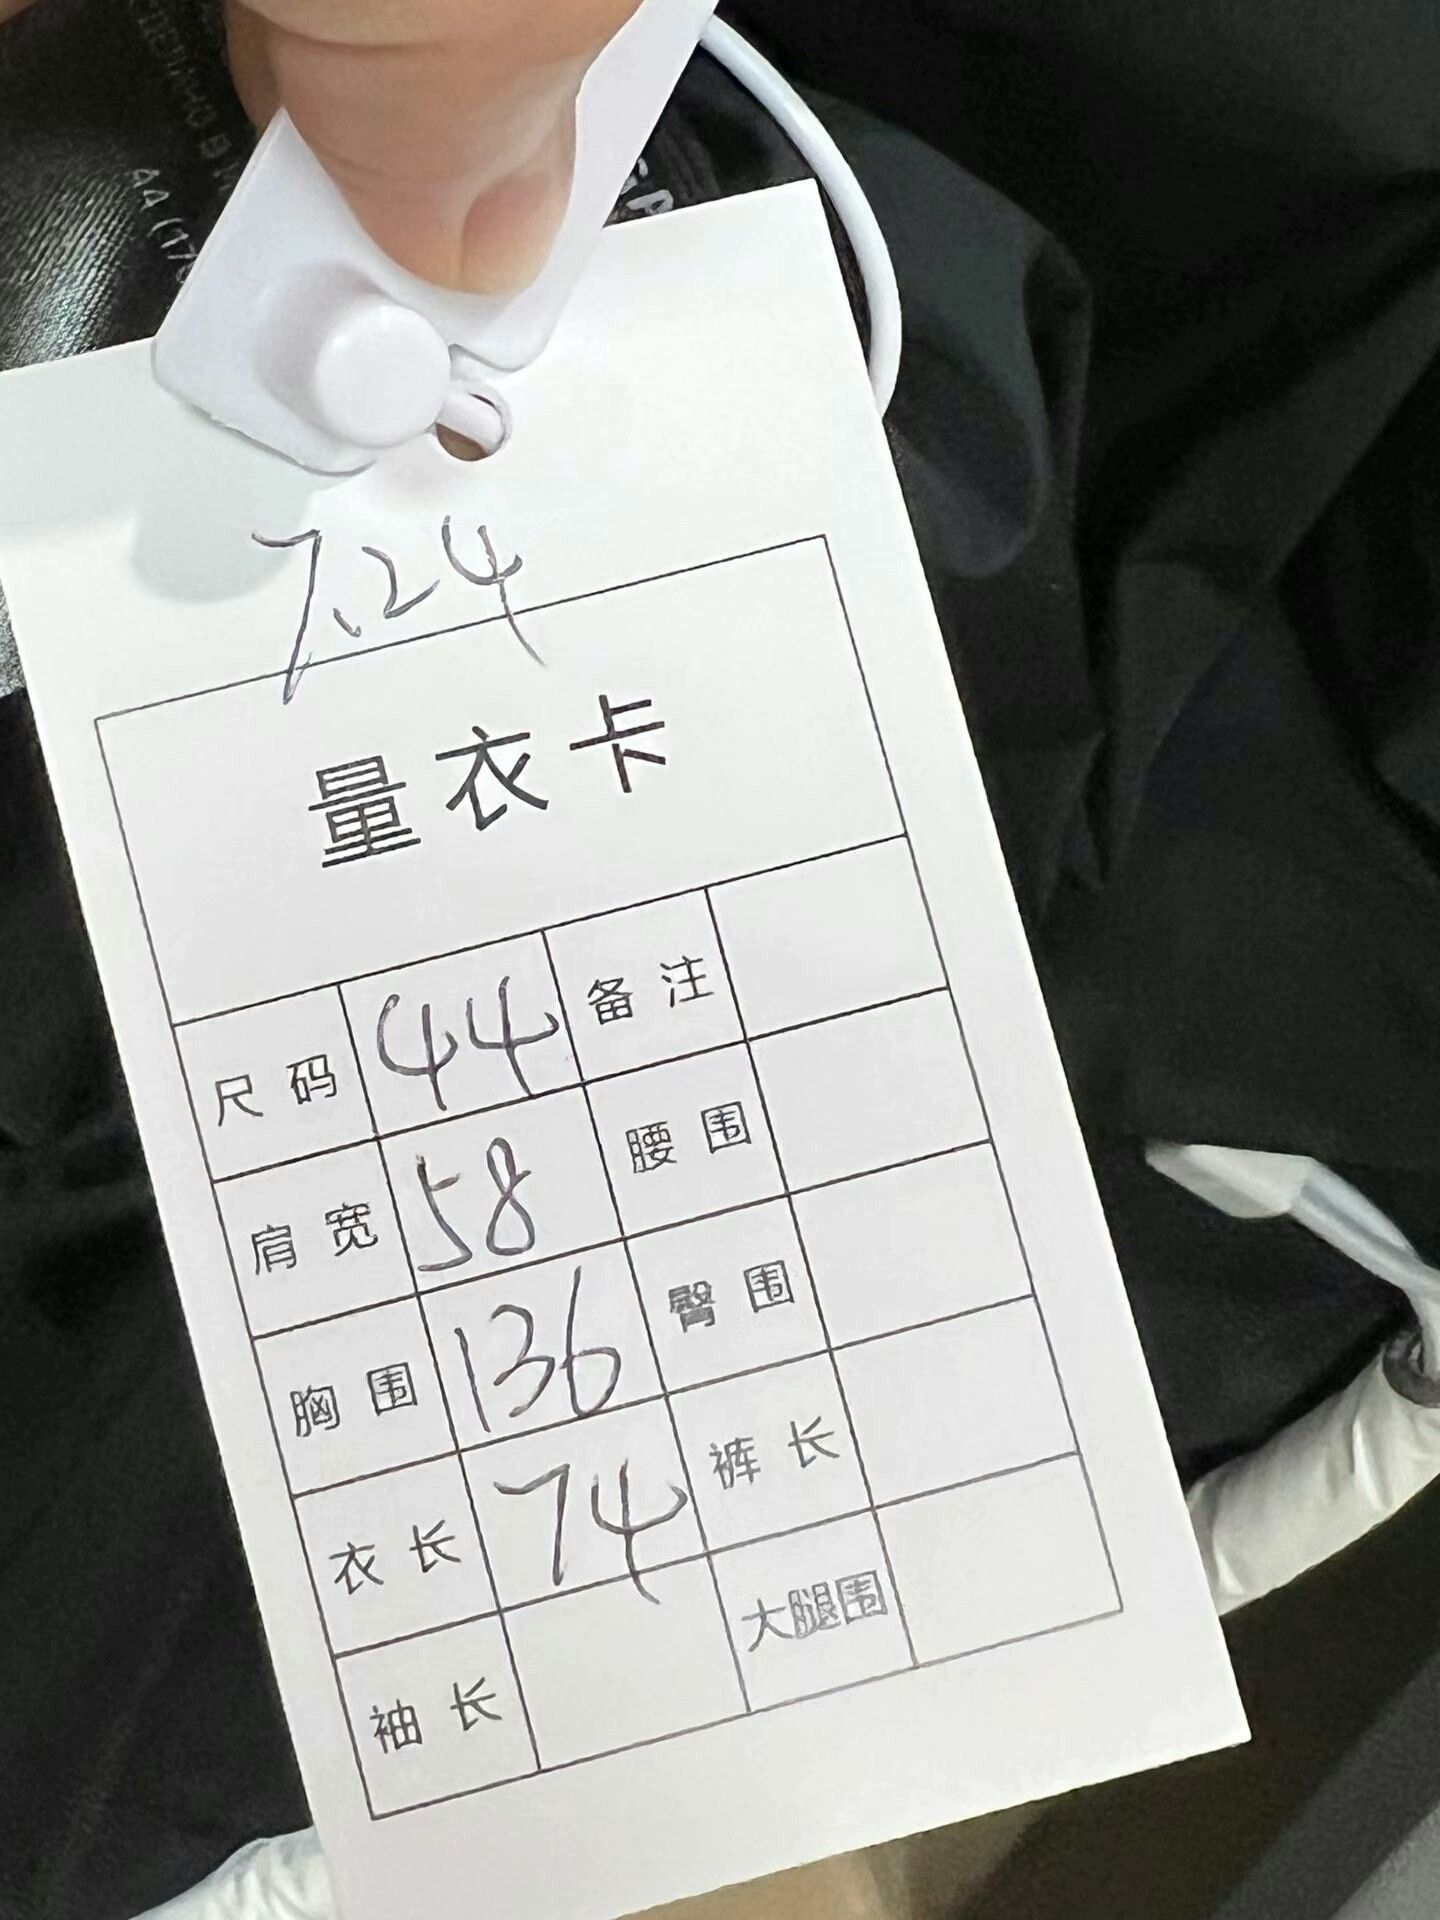 44 (17
7.24
量衣卡
尺码 44 备注
肩宽 58 腰围
胸围 136 臀围
衣长 74 裤长
袖长 大腿围